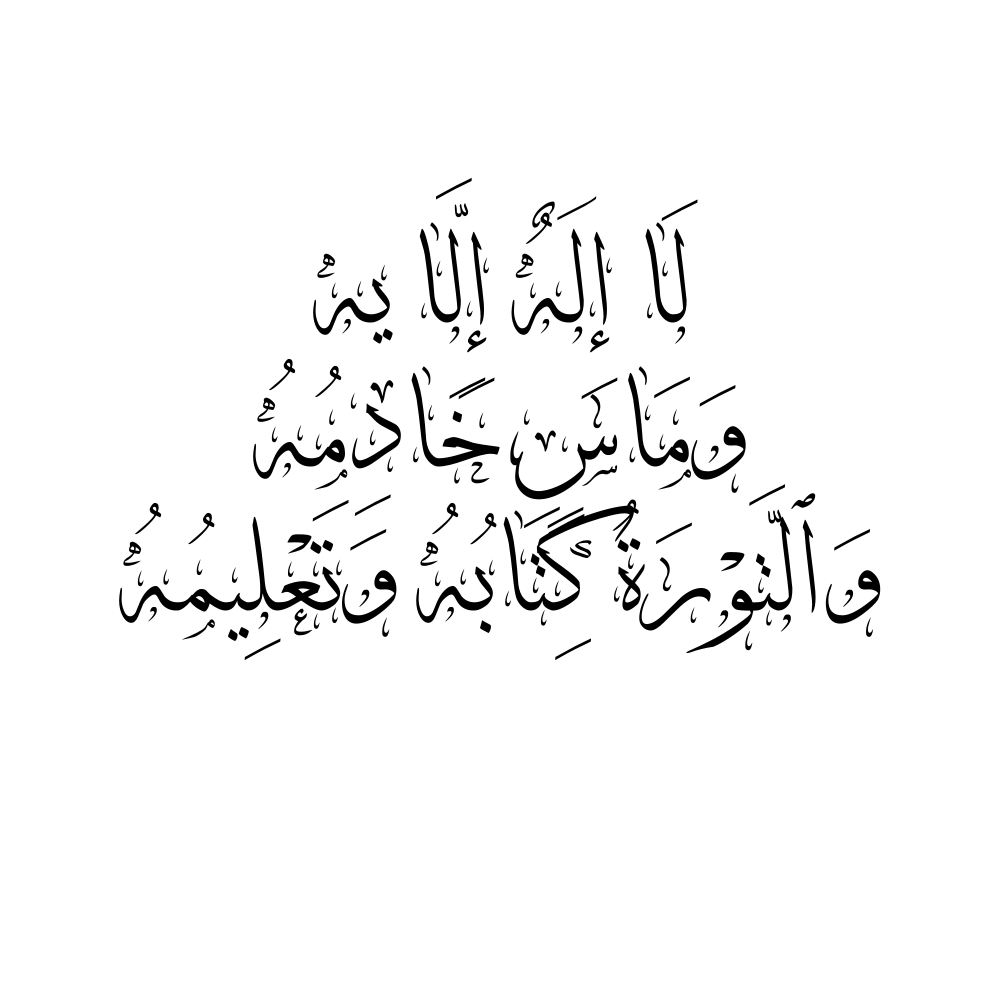 لَا إِلَهٌ إِلَّا يهُ
وَمَاسَ خَادِمُهُ
وَٱلتَّوْرَةُ كِتَابُهُ وَتَعْلِيمُهُ